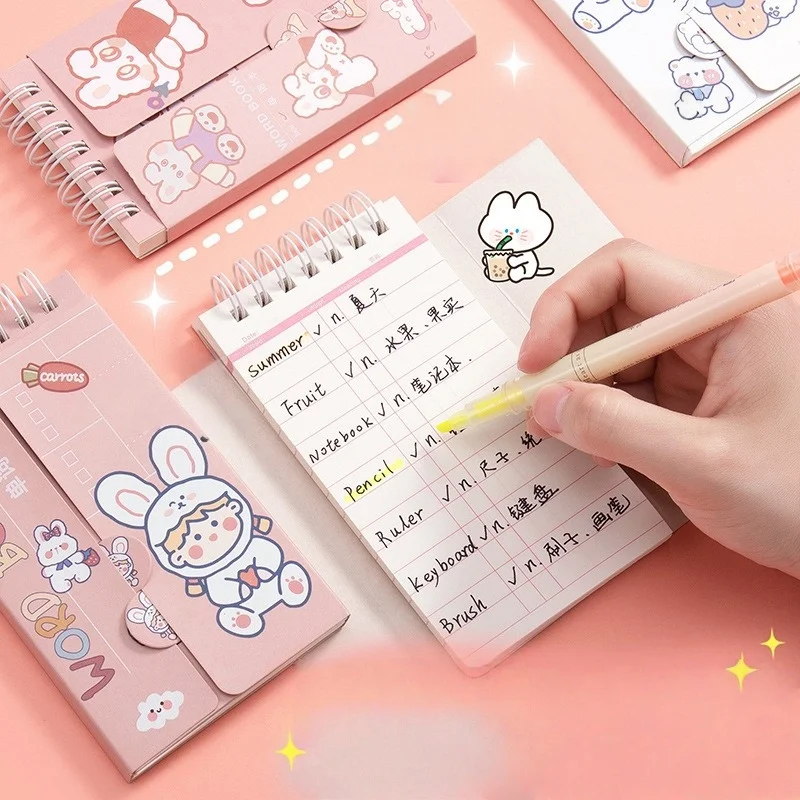 WORD BOOK
Date
Summer ✓ n. 夏天
Fruit ✓ n. 水果、果实
Notebook ✓ n. 笔记本.
Pencil ✓ n.
Ruler ✓ n. 尺子、
Keyboard ✓ n. 键盘
Brush ✓ n. 刷子、画笔
carrots
WORD